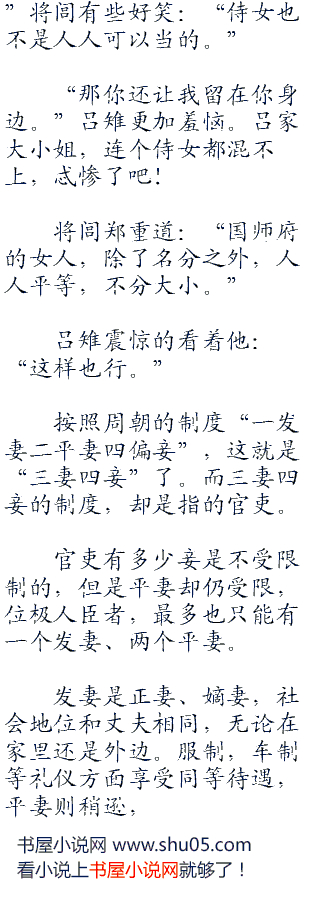 ”将闾有些好笑：“侍女也
不是人人可以当的。”
“那你还让我留在你身
边。”吕雉更加羞恼。吕家
大小姐，连个侍女都混不
上，忒惨了吧！
将闾郑重道：“国师府
的女人，除了名分之外，人
人平等，不分大小。”
吕雉震惊的看着他：
“这样也行。”
按照周朝的制度“一发
妻二平妻四偏妾”，这就是
“三妻四妾”了。而三妻四
妾的制度，却是指的官吏。
官吏有多少妾是不受限
制的，但是平妻却仍受限，
位极人臣者，最多也只能有
一个发妻、两个平妻。
发妻是正妻、嫡妻，社
会地位和丈夫相同，无论在
家里还是外边。服制，车制
等礼仪方面享受同等待遇，
平妻则稍逊，
书屋小说网 www.shu05.com
看小说上书屋小说网就够了！